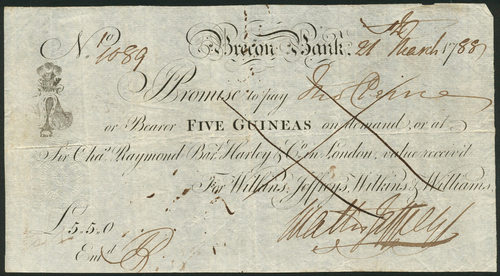 No. 1089 Brecon Bank 21st March 1788
I Promise to pay
or Bearer FIVE GUINEAS on demand, or at
Sir Chas. Raymond Bart. Harley & Co. in London, value receiv'd
For Wilkins, Jeffreys, Wilkins & Williams.
£5.5.0 Walter Jeffreys
Entd.